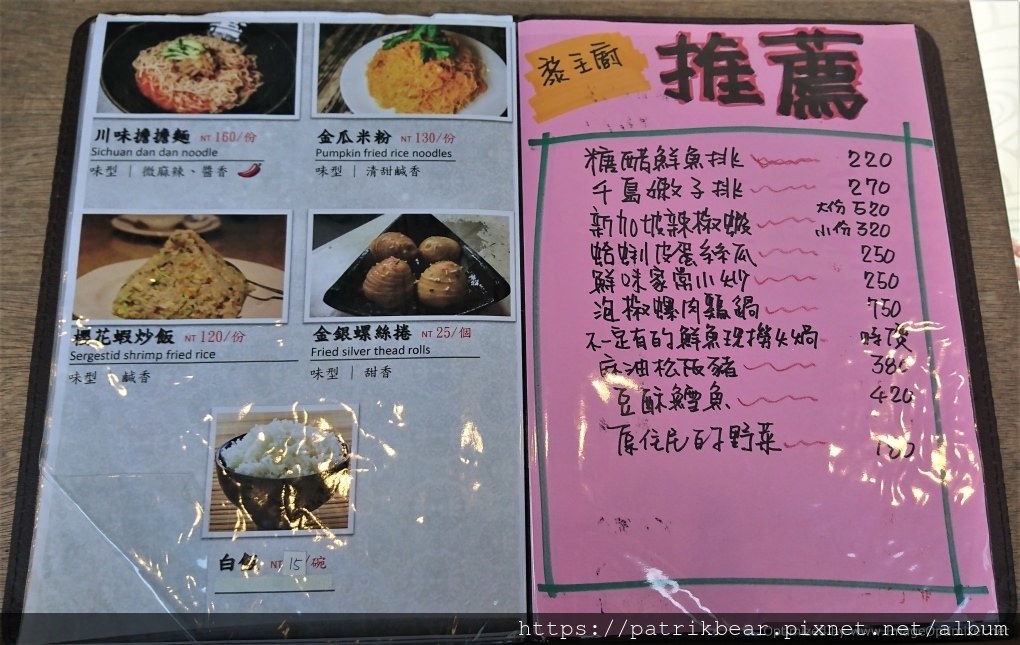 川味擔擔麵 NT 160/份
Sichuan dan dan noodle
味型 | 微麻辣、醬香
金瓜米粉 NT 130/份
Pumpkin fried rice noodles
味型 | 清甜鹹香
櫻花蝦炒飯 NT 120/份
Sergestid shrimp fried rice
味型 | 鹹香
金銀螺絲捲 NT 25/個
Fried silver thead rolls
味型 | 甜香
白飯 NT 15/碗
主廚
推薦
糖醋鮮魚排 220
千島嫩子排 270
新加坡辣椒蟹 大份 520
小份 320
蛤蜊皮蛋絲瓜 250
鮮味家常小炒 250
泡椒螺肉雞鍋 750
不一定有的鮮魚現撈火鍋 時價
麻油松阪豬 380
豆酥鱈魚 420
原住民的野菜
https://patrikbear.pixnet.net/album